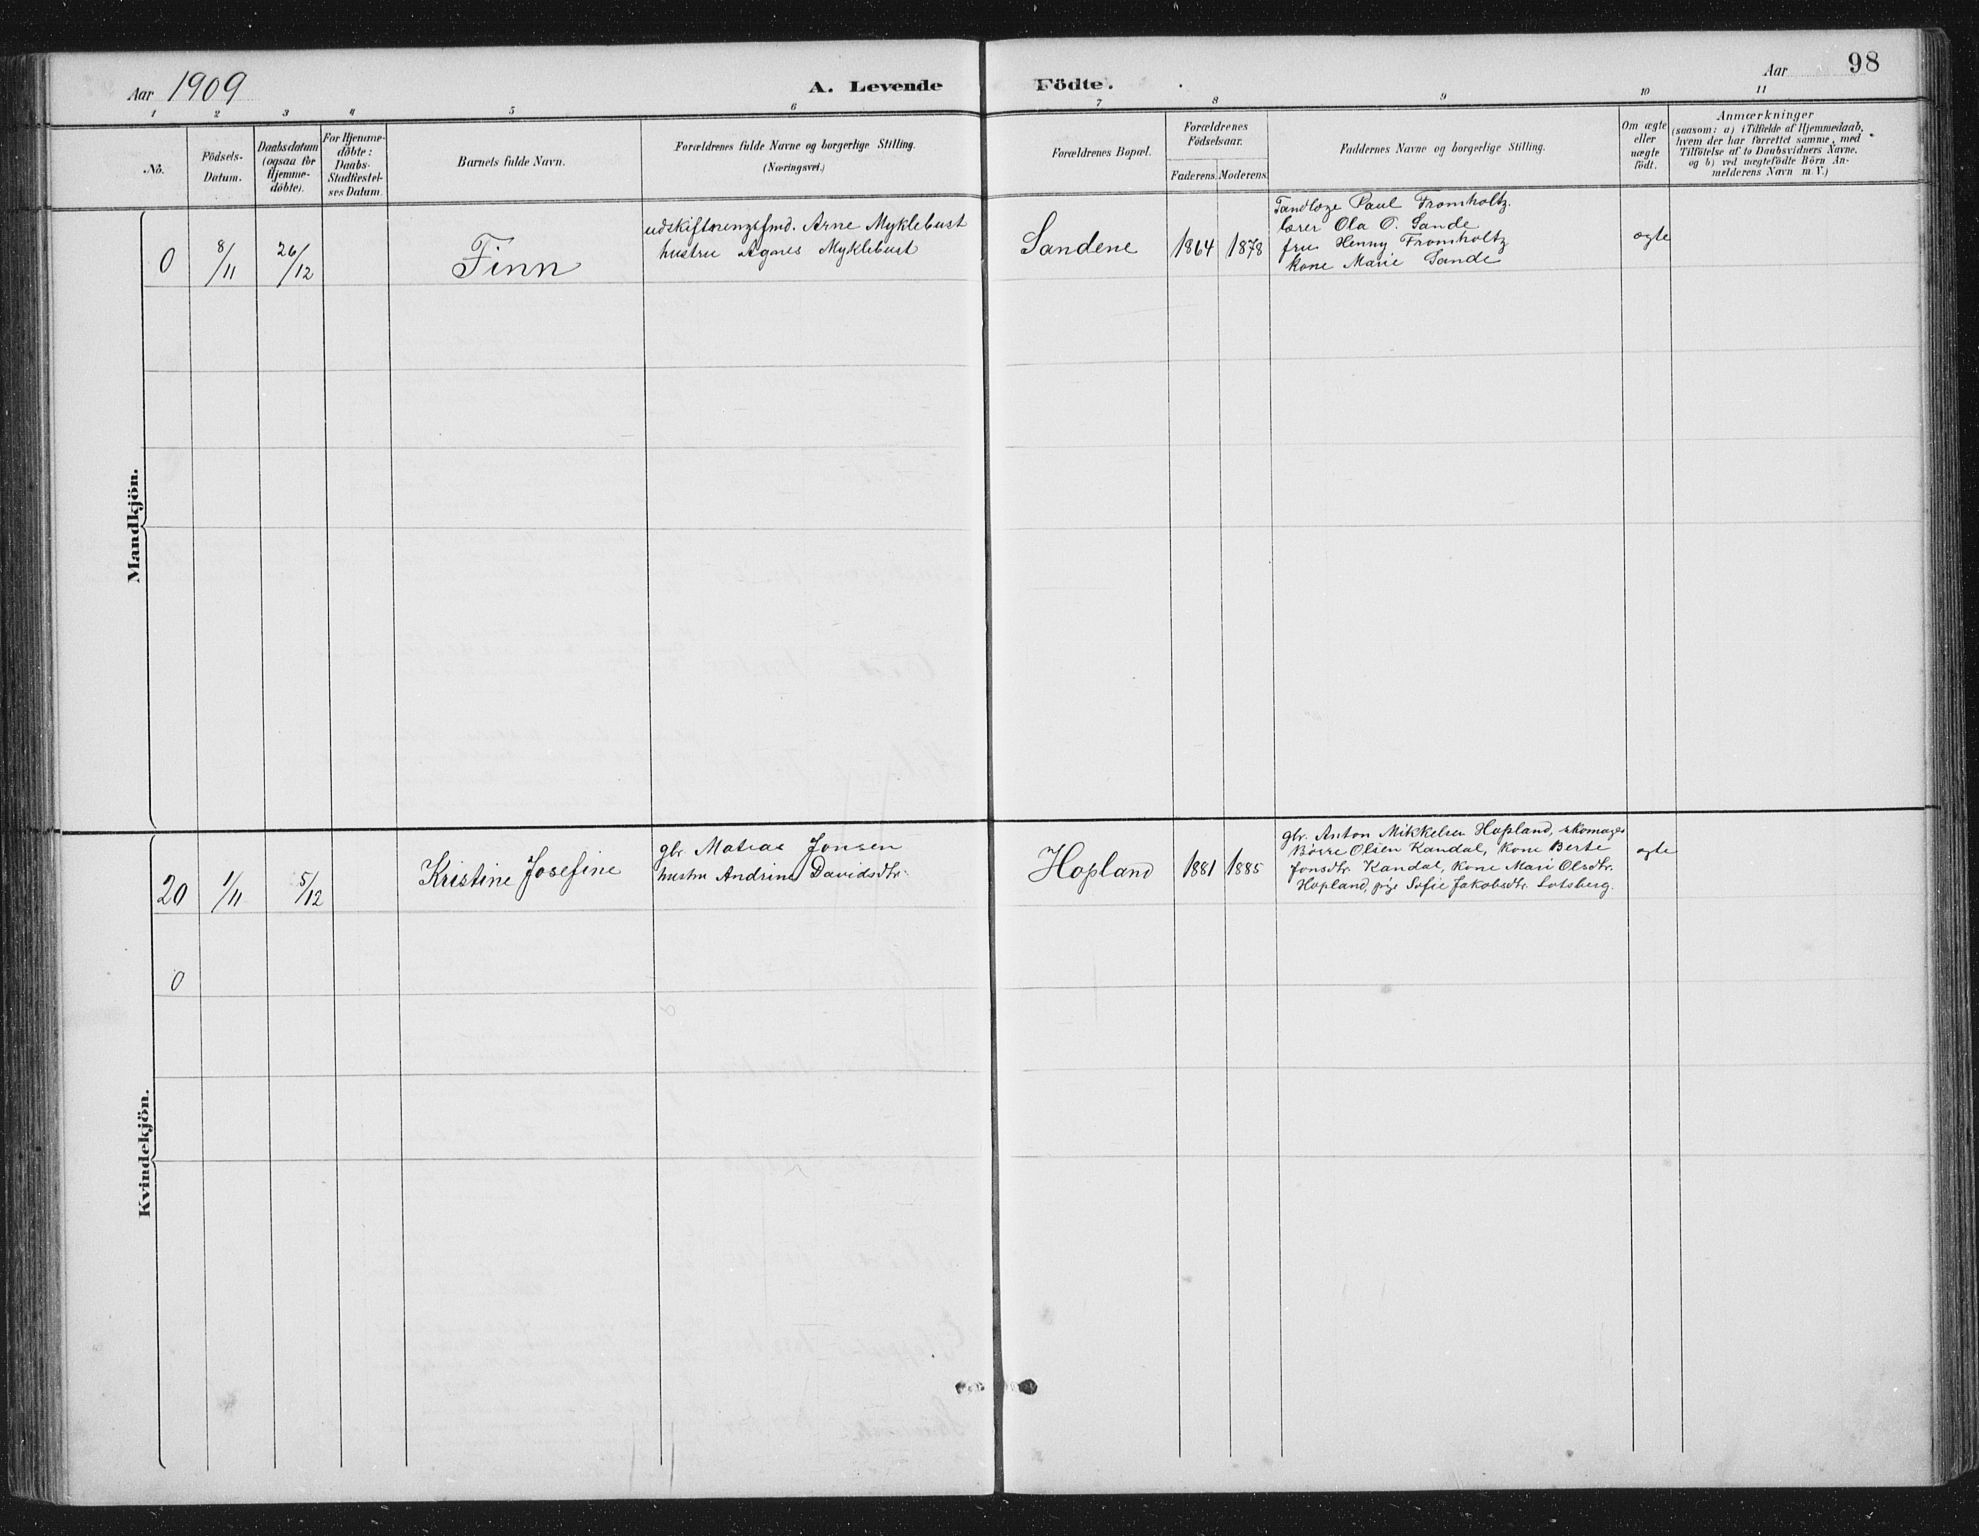 Aar 1909
A. Levende Födte.
Aar 98
1 2 3 4 5 6 7 8 9 10 11
No.
Födsels-
Datum.
Daabsdatum
(ogsaa for
Hjemme-
döbte).
For Hjemme-
döbte:
Daabs-
Stadfæstel-
ses Datum.
Barnets fulde Navn.
Forældrenes fulde Navne og borgerlige Stilling.
(Næringsvei.)
Forældrenes Bopæl.
Forældrenes
Födselsaar.
Faderens. Moderens.
Faddernes Navne og borgerlige Stilling.
Om ægte
eller
uægte
födt.
Anmærkninger
(saasom: a) i Tilfælde af Hjemmedaab,
hvem der har forrettet samme, med
Tilföielse af to Daabsvidners Navne,
og b) ved uægtefödte Börn An-
melderens Navn m. V.)
Mandkjön.
0
8/11
26/12
Finn
udskiftningsfmd. Arne Myklebust
hustru Agnes Myklebust
Sandene
1864 1878
Tandlæge Paul Fromholtz.
lærer Ola O. Sande
fru Henny Fromholtz
kone Marie Sande
ægte
Kvindekjön.
20
1/11
5/12
Kristine Josefine
gbr. Matias Jonsen
hustru Andrine Davidsdtr.
Hopland
1881 1885
gbr. Anton Mikkelsen Hopland, skomager
Börre Olsen Kandal, kone Berte
Jonsdtr. Kandal, kone Mari Olsdtr.
Hopland, pige Sofie Jakobsdtr. Lotsberg.
ægte
0